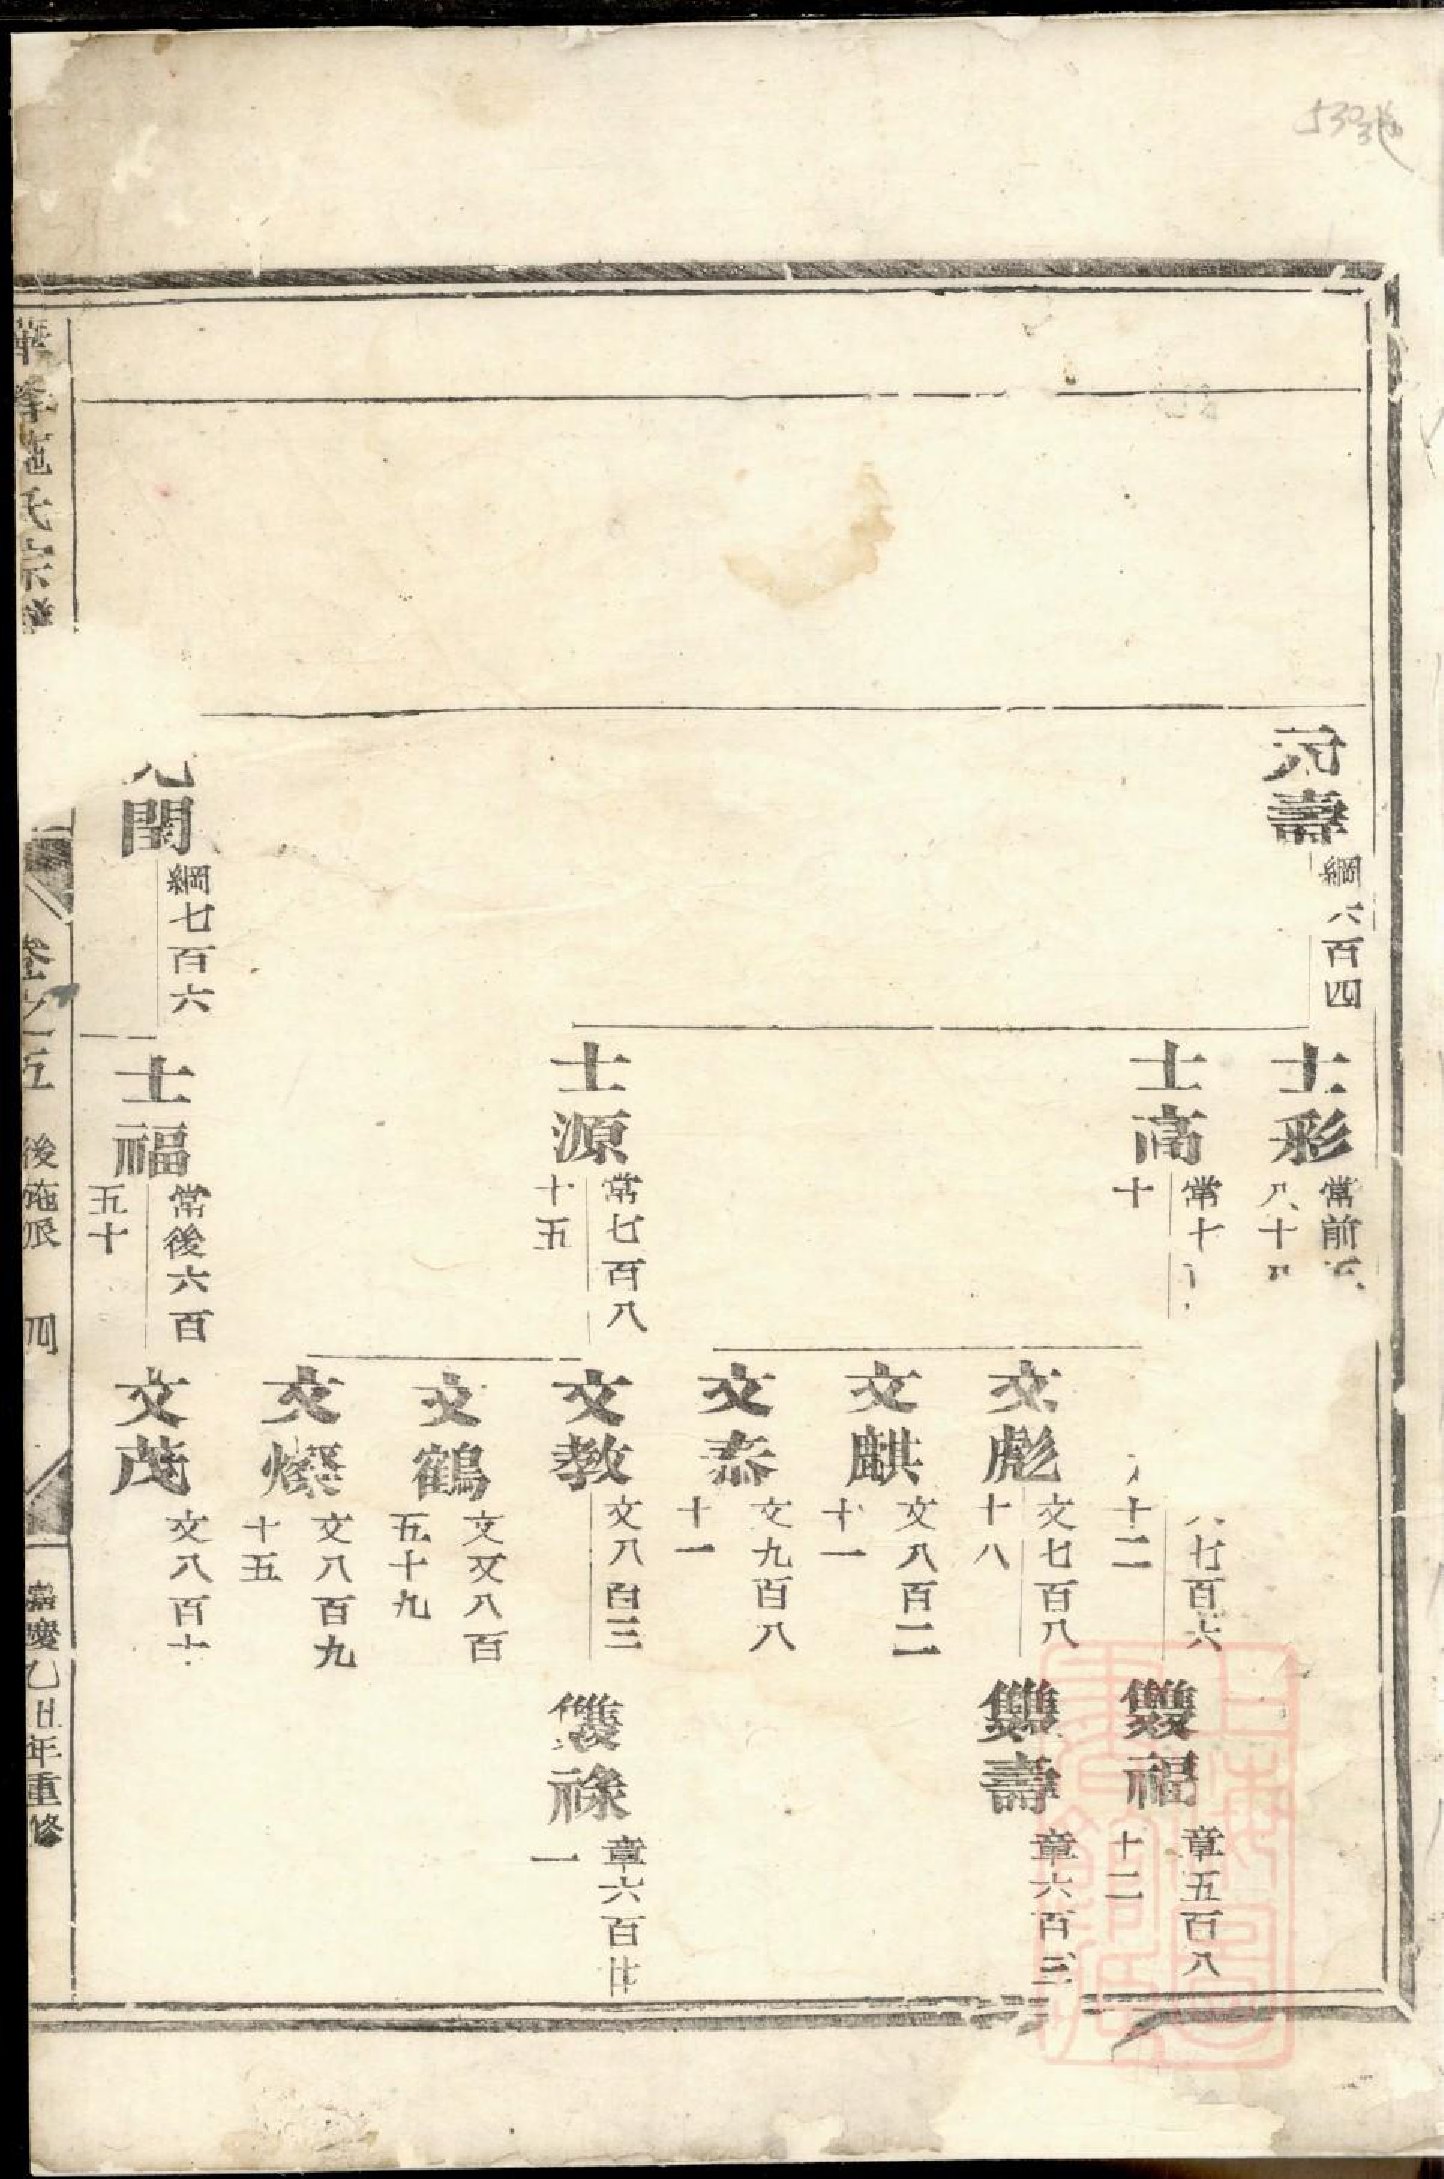 元壽
綱六百四
士彩
常前五
八十四
士高
常七
十
士源
常七百八
十五
七百六
十二
文彪
文七百八
十八
文麒
文八百二
十一
文泰
文九百八
十一
文教
文八百三
文鶴
文又八百
五十九
文燦
文八百九
十五
雙福
章五百八
十二
雙壽
章六百三
雙祿
章六百廿
一
元閏
綱七百六
士福
常後六百
五十
文茂
文八百十
華峯施氏宗譜
卷之五 後苑派 四
嘉慶乙丑年重修
上海圖書館藏